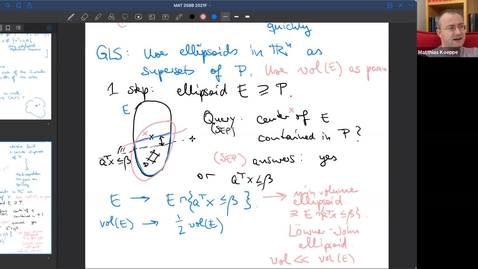 MAT 258B 2021F
quickly
GLS: Use ellipsoids in ℝⁿ as
supersets of P. Use vol(E) as
1 step: ellipsoid E ⊇ P.
E
Query: center of E
(SEP) contained in P?
aᵀx ≤ β
(SEP) answers: yes
or aᵀx ≤ β
E → E ∩ {aᵀx ≤ β} → min volume
ellipsoid
⊇ E ∩ {aᵀx ≤ β}.
vol(E) → ½ vol(E)
Löwner-John
ellipsoid
vol << vol(E)
Matthias Koeppe